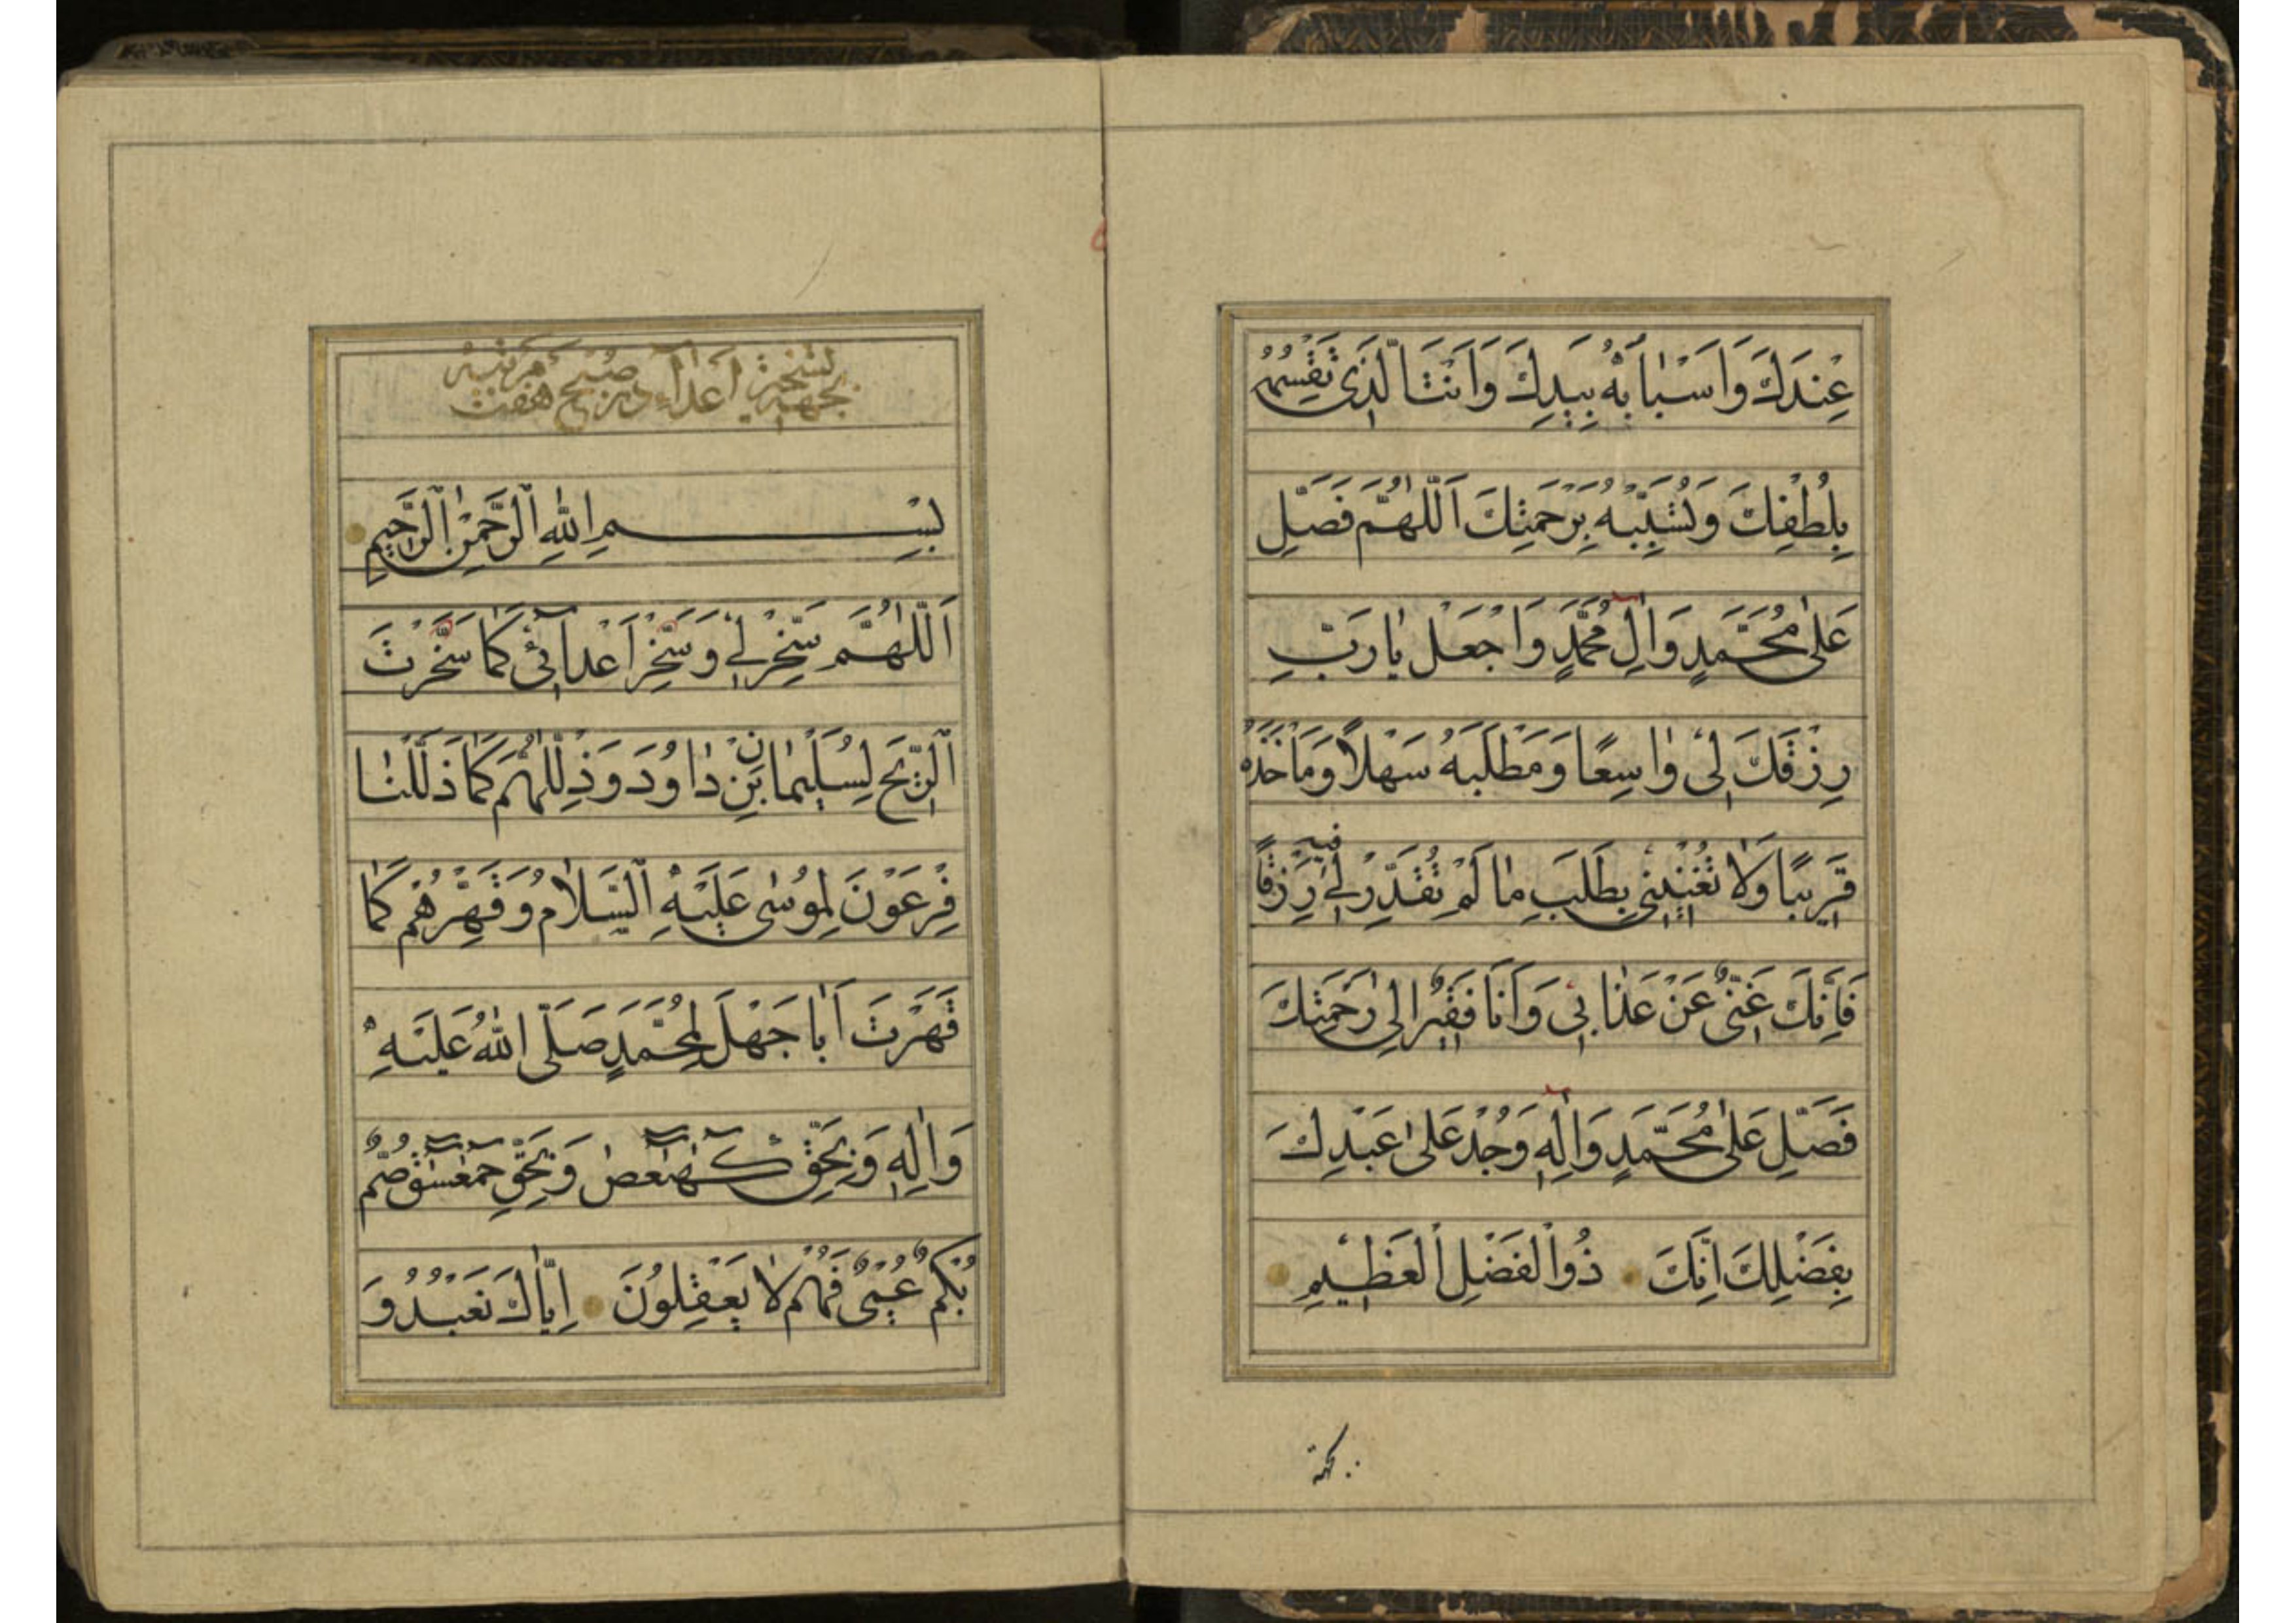 عِنْدَكَ وَاَسْبٰابَهُ بِيَدِكَ وَاَنْتَ الَّذِى تَقْسِمُهُ
بِلُطْفِكَ وَتُسَبِّبُهُ بِرَحْمَتِكَ اَللّٰهُمَّ فَصَلِّ
عَلٰى مُحَمَّدٍ وَاٰلِ مُحَمَّدٍ وَاجْعَلْ يٰا رَبِّ
رِزْقَكَ لِى وٰاسِعًا وَمَطْلَبَهُ سَهْلاً وَمَأْخَذَهُ
قَرِيبًا وَلاٰ تُعَنِّنِى بِطَلَبِ مٰا لَمْ تُقَدِّرْ لِى فيه رِزْقًا
فَاِنَّكَ غَنِىٌّ عَنْ عَذٰابِى وَاَنَا فَقِيرٌ اِلٰى رَحْمَتِكَ
فَصَلِّ عَلٰى مُحَمَّدٍ وَاٰلِهِ وَجُدْ عَلٰى عَبْدِكَ
بِفَضْلِكَ اِنَّكَ ذُوالْفَضْلِ الْعَظِيمِ
بجهة
بجهة تسخير اعداء در صبح هفت مرتبه
بِسْمِ اللهِ الرَّحْمٰنِ الرَّحِيمِ
اَللّٰهُمَّ سَخِّرْ لِى وَسَخِّرْ اَعْدآئِى كَمٰا سَخَّرْتَ
الرِّيحَ لِسُلَيْمٰانَ بْنِ دٰاوُدَ وَذَلِّلْهُمْ كَمٰا ذَلَّلْنٰا
فِرْعَوْنَ لِمُوسٰى عَلَيْهِ السَّلاٰمُ وَقَهِّرْهُمْ كَمٰا
قَهَرْتَ اَبٰا جَهْلَ لِمُحَمَّدٍ صَلَّى اللهُ عَلَيْهِ
وَاٰلِهِ وَبِحَقِّ كهيعص وَبِحَقِّ حمعسق صُمٌّ
بُكْمٌ عُمْىٌ فَهُمْ لاٰ يَعْقِلُونَ اِيّٰاكَ نَعْبُدُ وَ